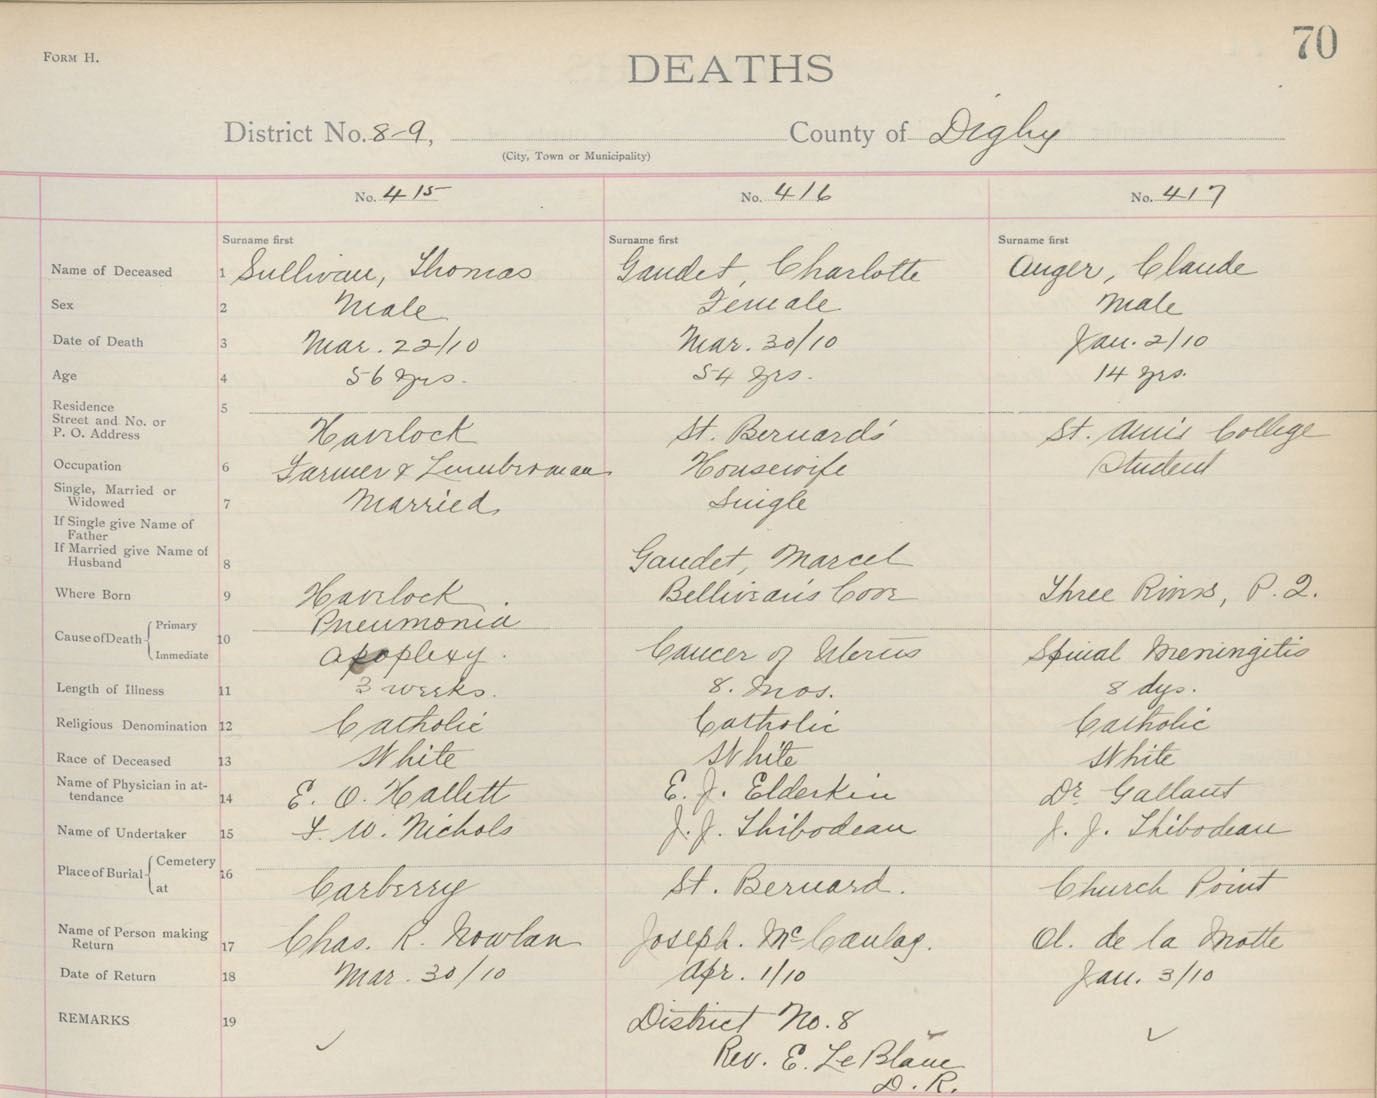 FORM H.
70
DEATHS
District No. 8-9, County of Digby
(City, Town or Municipality)
No. 415 No. 416 No. 417
Surname first Surname first Surname first
Name of Deceased 1 Sullivan, Thomas Gaudet, Charlotte Auger, Claude
Sex 2 Male Female Male
Date of Death 3 Mar. 22/10 Mar. 30/10 Jan. 2/10
Age 4 56 yrs. 54 yrs. 14 yrs.
Residence 5
Street and No. or
P. O. Address Havelock St. Bernard's St. Ann's College
Occupation 6 Farmer & Lumberman Housewife Student
Single, Married or
Widowed 7 Married Single
If Single give Name of
Father
If Married give Name of
Husband 8 Gaudet, Marcel
Where Born 9 Havelock. Belliveau's Cove Three Rivers, P.Q.
Cause of Death Primary 10 Pneumonia
Immediate Apoplexy. Cancer of Uterus Spinal Meningitis
Length of Illness 11 3 weeks. 8. mos. 8 dys.
Religious Denomination 12 Catholic Catholic Catholic
Race of Deceased 13 White White White
Name of Physician in at-
tendance 14 E. O. Hallett E. J. Elderkin Dr. Gallant
Name of Undertaker 15 F. W. Nichols J. J. Thibodeau J. J. Thibodeau
Place of Burial Cemetery 16
at Carberry St. Bernard. Church Point
Name of Person making
Return 17 Chas. R. Nowlan Joseph. McCaulay. A. de la Motte
Date of Return 18 Mar. 30/10 Apr. 1/10 Jan. 3/10
REMARKS 19 District No. 8
Rev. E. LeBlanc
D. R.